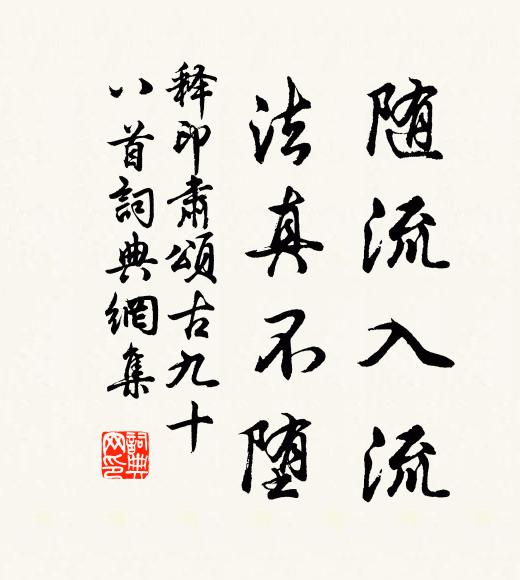 随流入流
法真不堕
释印肃颂古九十
八首詞典網集
詞典
网印